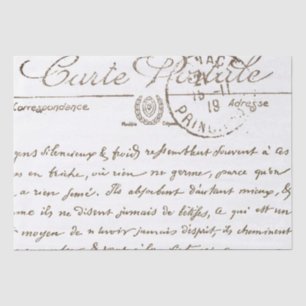 Carte Postale
Correspondance
Adresse
19
gens silencieux & froids ressemblent souvent à ces
en friche, où rien ne germe, parce qu'on
a rien semé. Ils absorbent d'autant mieux, &
me ils ne disent jamais de bêtises, ce qui est un
moyen de n'avoir jamais d'esprit, ils cheminent